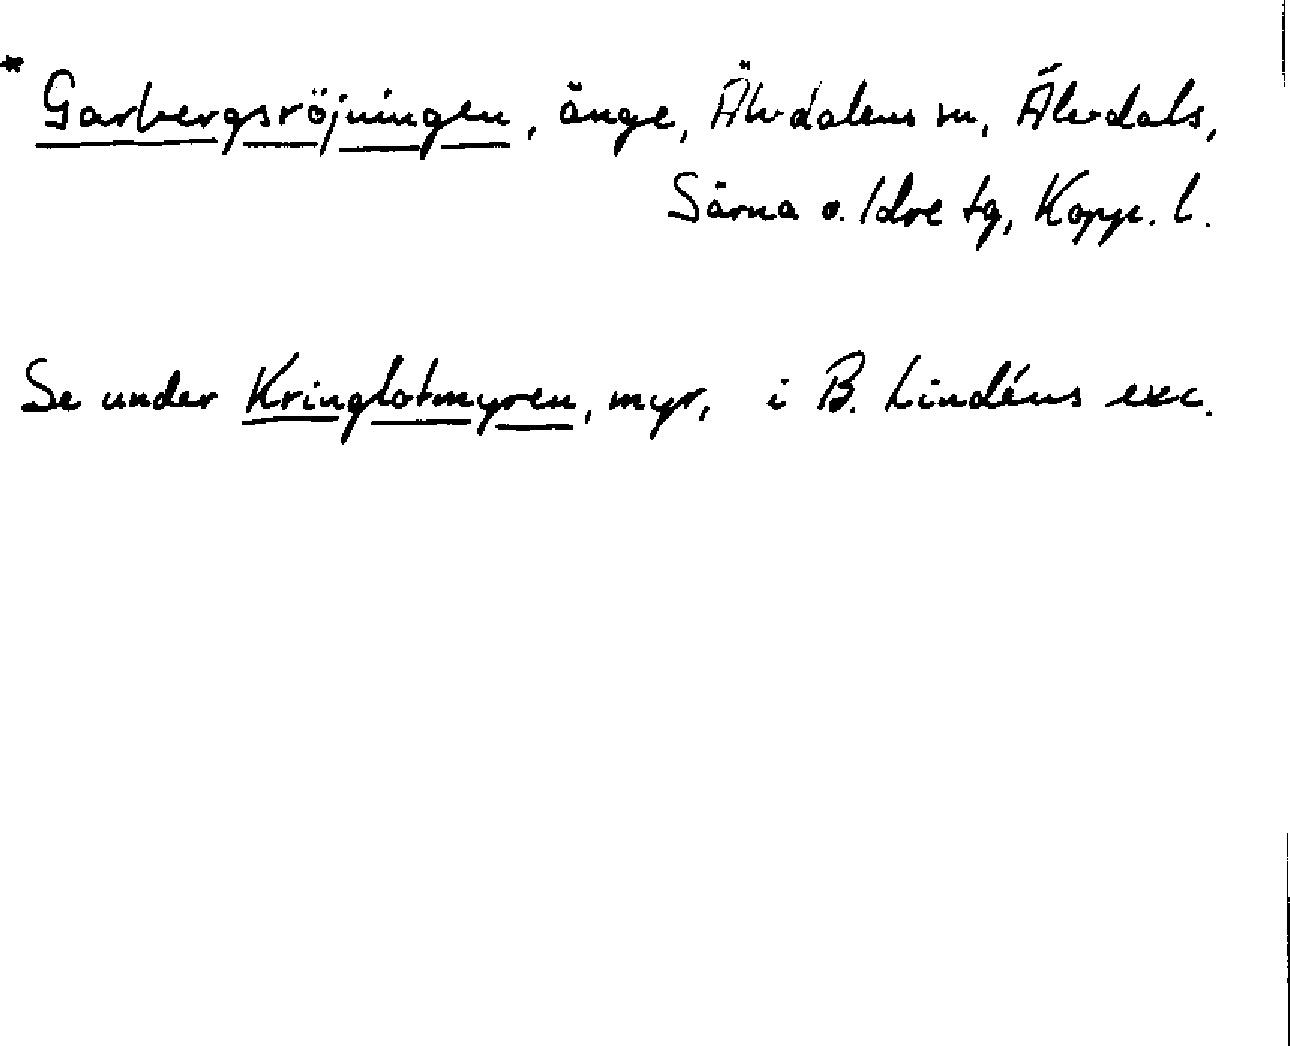 * Garbergsröjningen, änge, Älvdalens sn, Älvdals,
Särna o. Idre tg, Kopp. l.
Se under Kringlotmyren, myr, i B. Lindéns exc.